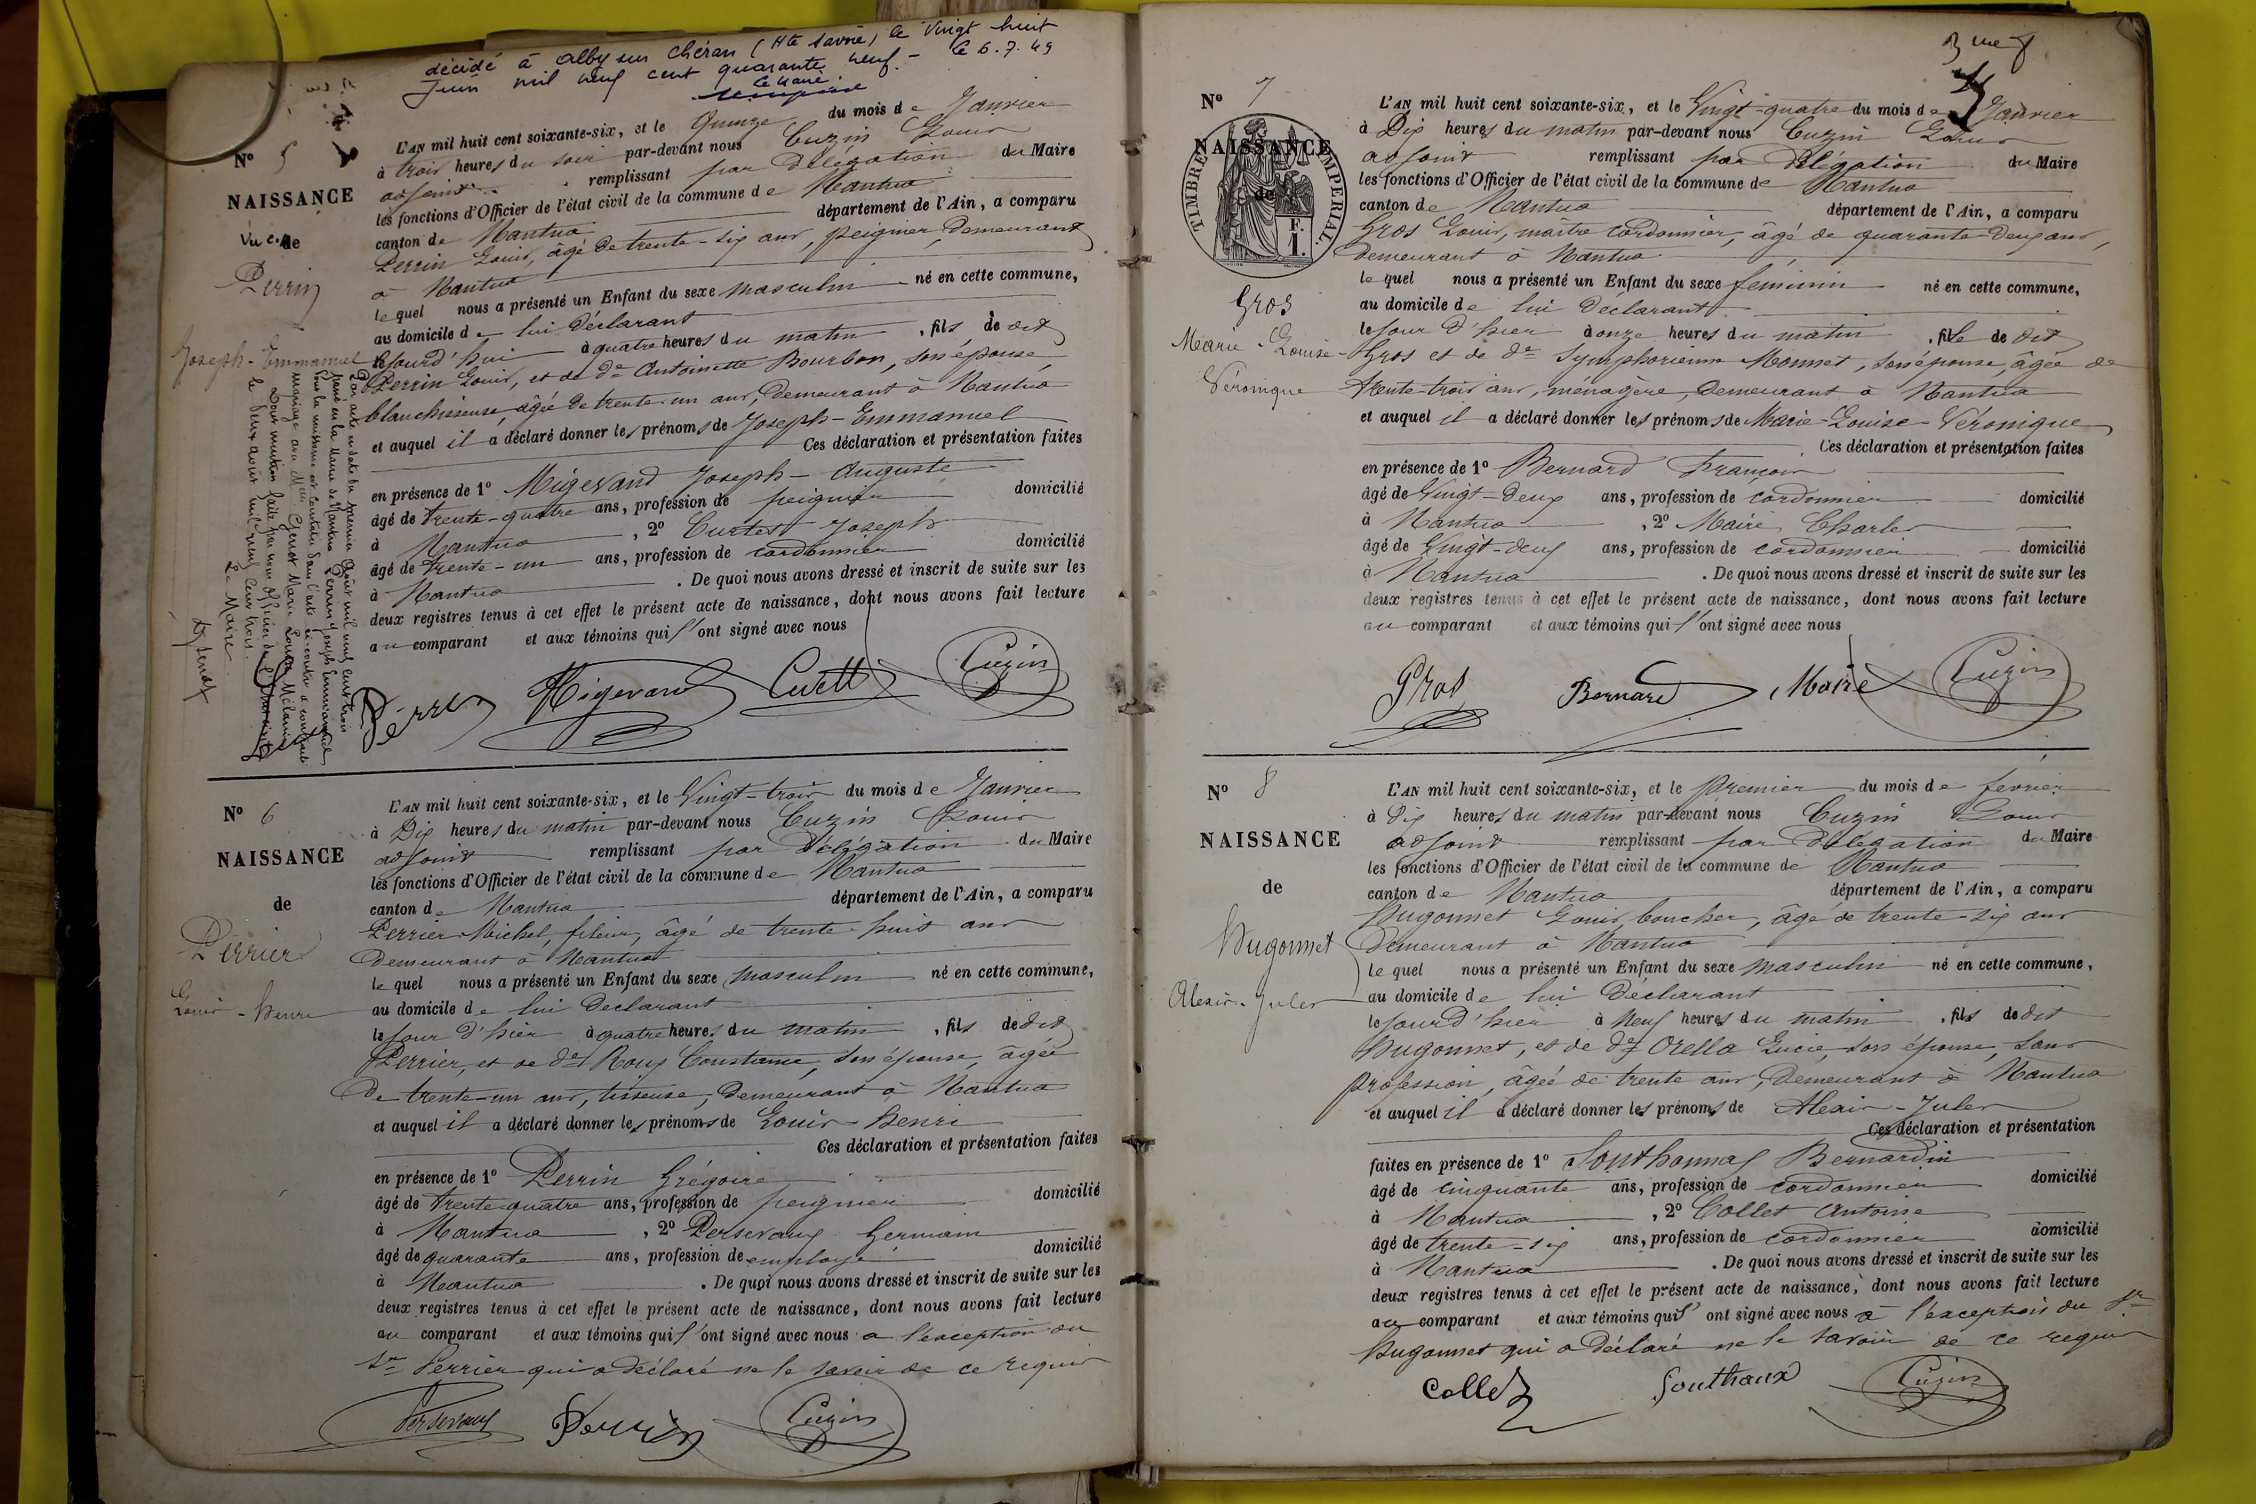 décédé à Alby sur Chéran (Hte Savoie) le Vingt huit
Juin mil neuf cent quarante neuf. - le 6.7.49
Le Maire
Nº 5
NAISSANCE
de
Perrin
Joseph-Emmanuel
L'AN mil huit cent soixante-six, et le Quinze du mois de Janvier
à trois heures du soir par-devant nous Cuzin Louis
adjoint remplissant par Délégation du Maire
les fonctions d'Officier de l'état civil de la commune de Nantua
canton de Nantua département de l'Ain, a comparu
Perrin Louis, âgé de trente-six ans, peignier, demeurant
à Nantua
lequel nous a présenté un Enfant du sexe masculin né en cette commune,
au domicile de lui Déclarant
le jourd'hui à quatre heures du matin, fils de dit
Perrin Louis, et de de Antoinette Bourbon, son épouse,
blanchisseuse, âgée de trente-un ans, demeurant à Nantua
et auquel il a déclaré donner les prénoms de Joseph-Emmanuel
Ces déclaration et présentation faites
en présence de 1º Migevand Joseph-Auguste
âgé de trente-quatre ans, profession de peignier domicilié
à Nantua, 2º Curtet Joseph
âgé de trente-un ans, profession de cordonnier domicilié
à Nantua. De quoi nous avons dressé et inscrit de suite sur les
deux registres tenus à cet effet le présent acte de naissance, dont nous avons fait lecture
au comparant et aux témoins qui l'ont signé avec nous
Perrin Migevand Curtet Cuzin
Par acte en date du premier Août mil neuf cent trois
passé en la Mairie de Nantua Perrin Joseph Emmanuel
dont la naissance est constatée dans l'acte ci-contre a contracté
mariage avec Melle Genot Marie Louise Mélanie
Dont mention faite par nous officier de l'état civil
le deux août mil neuf cent trois.
Le Maire
Nº 6
NAISSANCE
de
Perrier
Louis-Henri
L'AN mil huit cent soixante-six, et le Vingt-trois du mois de Janvier
à Dix heures du matin par-devant nous Cuzin Louis
adjoint remplissant par Délégation du Maire
les fonctions d'Officier de l'état civil de la commune de Nantua
canton de Nantua département de l'Ain, a comparu
Perrier Michel, fileur, âgé de trente-huit ans
demeurant à Nantua
lequel nous a présenté un Enfant du sexe masculin né en cette commune,
au domicile de lui Déclarant
le jour d'hier à quatre heures du matin, fils de dit
Perrier, et de de Roux Constance, son épouse, âgée
de trente-un ans, tisseuse, demeurant à Nantua
et auquel il a déclaré donner les prénoms de Louis-Henri
Ces déclaration et présentation faites
en présence de 1º Perrin Grégoire
âgé de trente-quatre ans, profession de peignier domicilié
à Nantua, 2º Persevaux Germain
âgé de quarante ans, profession de employé domicilié
à Nantua. De quoi nous avons dressé et inscrit de suite sur les
deux registres tenus à cet effet le présent acte de naissance, dont nous avons fait lecture
au comparant et aux témoins qui l'ont signé avec nous à l'exception du
Sr Perrier qui a déclaré ne le savoir de ce requis
Persevaux Perrin Cuzin
Nº 7
NAISSANCE
de
TIMBRE IMPERIAL
F. 1.
Gros
Marie-Louise-
Véronique
L'AN mil huit cent soixante-six, et le Vingt-quatre du mois de Janvier
à Dix heures du matin par-devant nous Cuzin Louis
adjoint remplissant par Délégation du Maire
les fonctions d'Officier de l'état civil de la commune de Nantua
canton de Nantua département de l'Ain, a comparu
Gros Louis, maître cordonnier, âgé de quarante-deux ans,
demeurant à Nantua
lequel nous a présenté un Enfant du sexe féminin né en cette commune,
au domicile de lui Déclarant
le jour d'hier à onze heures du matin, fille de dit
Gros et de de Symphorienne Monnet, son épouse, âgée de
trente-trois ans, ménagère, demeurant à Nantua
et auquel il a déclaré donner les prénoms de Marie-Louise-Véronique
Ces déclaration et présentation faites
en présence de 1º Bernard François
âgé de Vingt-deux ans, profession de cordonnier domicilié
à Nantua, 2º Maire Charles
âgé de Vingt-deux ans, profession de cordonnier domicilié
à Nantua. De quoi nous avons dressé et inscrit de suite sur les
deux registres tenus à cet effet le présent acte de naissance, dont nous avons fait lecture
au comparant et aux témoins qui l'ont signé avec nous
Gros Bernard Maire Cuzin
Nº 8
NAISSANCE
de
Hugonnet
Alexis-Jules
L'AN mil huit cent soixante-six, et le premier du mois de février
à dix heures du matin par-devant nous Cuzin Louis
adjoint remplissant par Délégation du Maire
les fonctions d'Officier de l'état civil de la commune de Nantua
canton de Nantua département de l'Ain, a comparu
Hugonnet Louis, boucher, âgé de trente-six ans
demeurant à Nantua
lequel nous a présenté un Enfant du sexe masculin né en cette commune,
au domicile de lui Déclarant
le jour d'hier à neuf heures du matin, fils de dit
Hugonnet, et de de Orella Lucie, son épouse, sans
profession, âgée de trente ans, demeurant à Nantua
et auquel il a déclaré donner les prénoms de Alexis-Jules
Ces déclaration et présentation
faites en présence de 1º Southonnax Bernardin
âgé de cinquante ans, profession de cordonnier domicilié
à Nantua, 2º Collet Antoine
âgé de trente-six ans, profession de cordonnier domicilié
à Nantua. De quoi nous avons dressé et inscrit de suite sur les
deux registres tenus à cet effet le présent acte de naissance, dont nous avons fait lecture
au comparant et aux témoins qui l'ont signé avec nous à l'exception du Sr
Hugonnet qui a déclaré ne le savoir de ce requis
Collet Southonax Cuzin